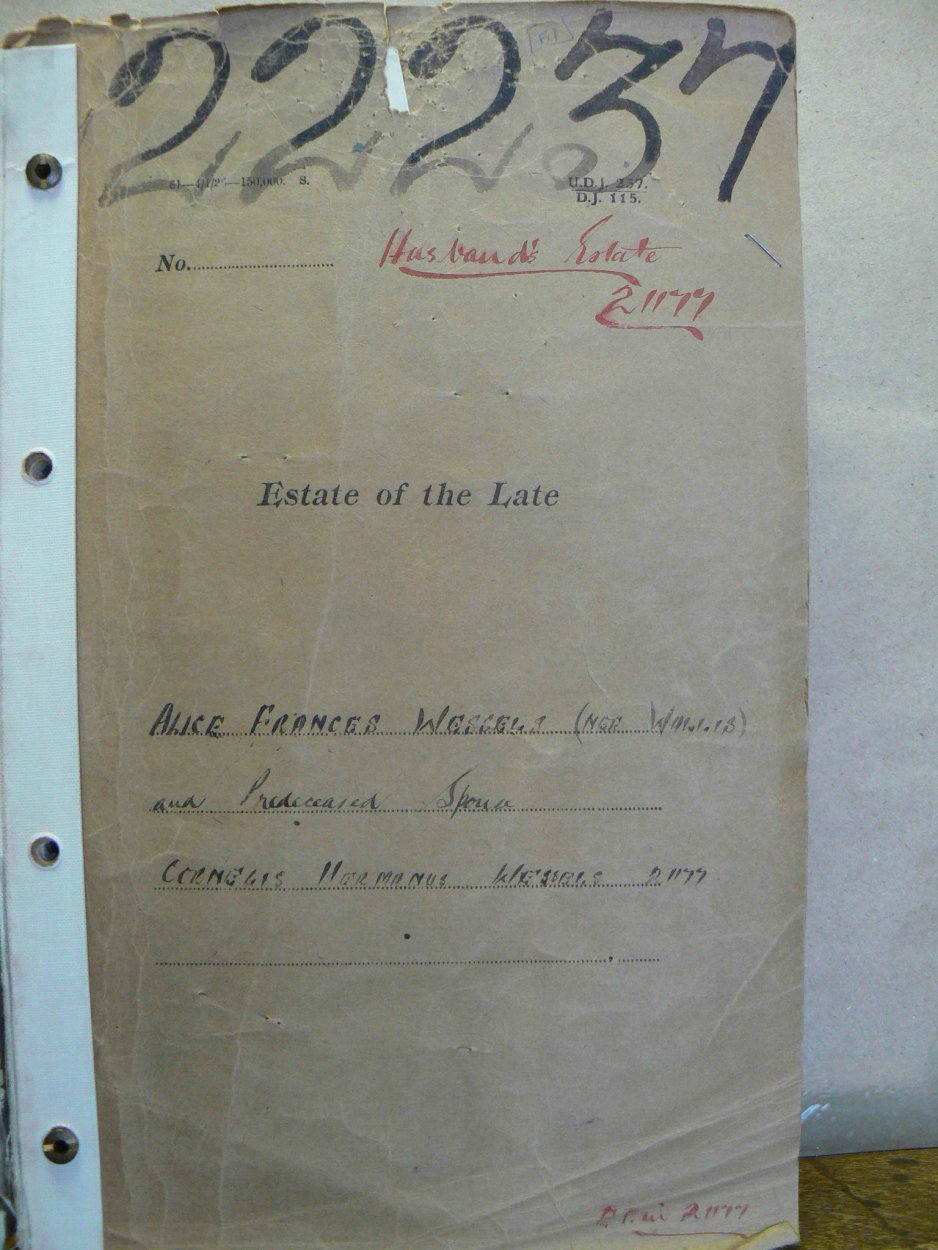 22237
61—4/1/26—150,000. S.
U.D.J. 257.
D.J. 115.
No.
Husband's Estate
21177
Estate of the Late
ALICE FRANCES WESSELS (NEE WALLIS)
and Predeceased Spouse
CORNELIS HERMANUS WESSELS 21177
21177